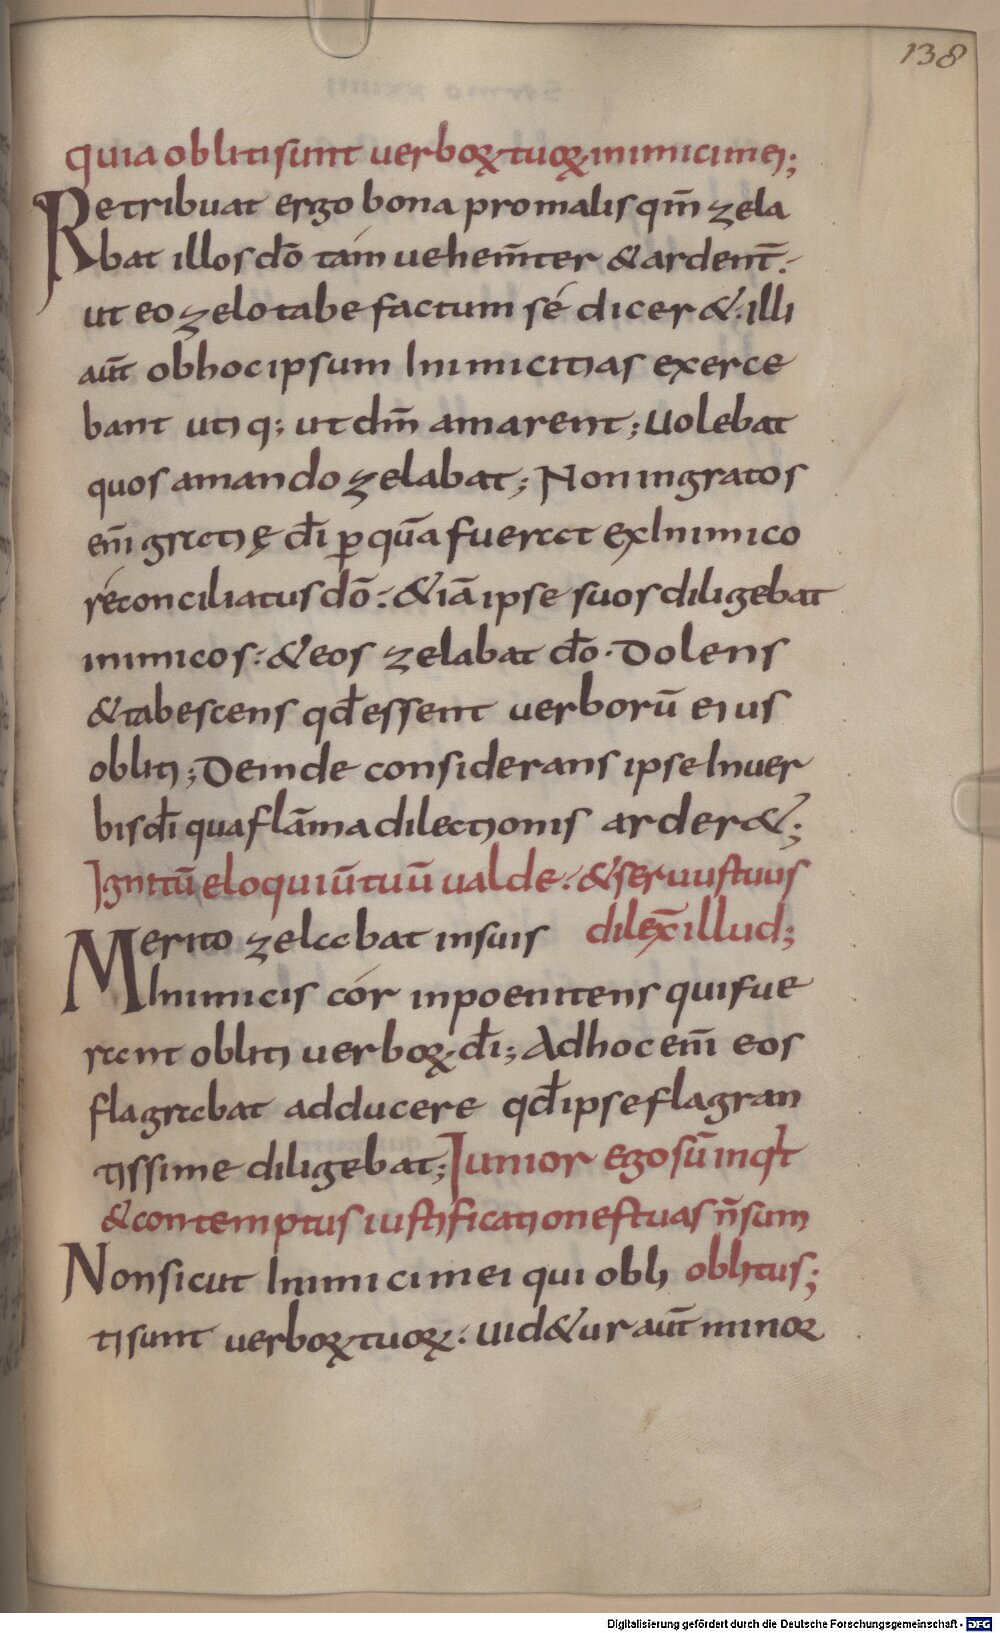 138
quia obliti sunt uerboꝝ tuoꝝ inimici mei;
Retribuat ergo bona pro malis qm̄ zela
bat illos dō tám uehem̄ter & ardent̄.
ut eo zelo tabefactum sé dicer&. illi
aūt ob hoc ipsum Inimicitias exerce
bant utiq; ut dm̄ amarent; Uolebat
quos amando zelabat; Non ingratos
em̄ gratię dī ꝑ quā fuerat ex Inimico
réconciliatus dō. & iā ipse suos diligebat
inimicos. & eos zelabat dō. Dolens
& tabescens qđ essent uerborū eius
obliti; Deinde considerans ipse In uer
bis dī qua flāma dilectionis arder&;
Ignitū eloquiū tuū ualde. & seruus tuus
dilex̄ illud;
Merito zelabat in suis
Inimicis cór inpoenitens qui fue
rant obliti uerboꝝ dī; Ad hoc em̄ eos
flagrabat adducere qđ ipse flagran
tissime diligebat; Iunior ego sū inqt̄
& contemptus iustificationes tuas n̄ sum
oblitus;
Non sicut Inimici mei qui obli
ti sunt uerboꝝ tuoꝝ. uid&ur aūt minor
Digitalisierung gefördert durch die Deutsche Forschungsgemeinschaft - DFG